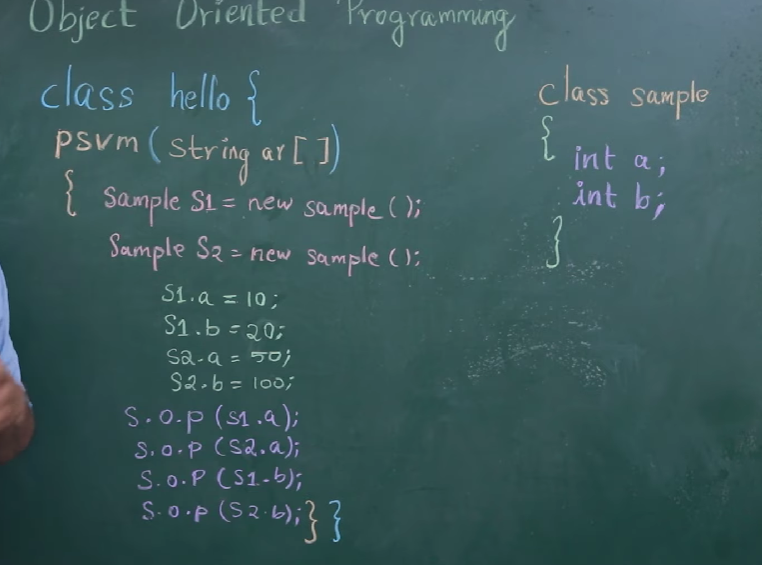 Object Oriented Programming
class hello {
psvm ( string ar [ ] )
{ Sample S1 = new sample ( );
Sample S2 = new sample ( );
S1.a = 10;
S1.b = 20;
S2.a = 50;
S2.b = 100;
S.O.p (S1.a);
S.O.P (S2.a);
S.O.P (S1.b);
S.O.P (S2.b); } }
class sample
{
int a;
int b;
}